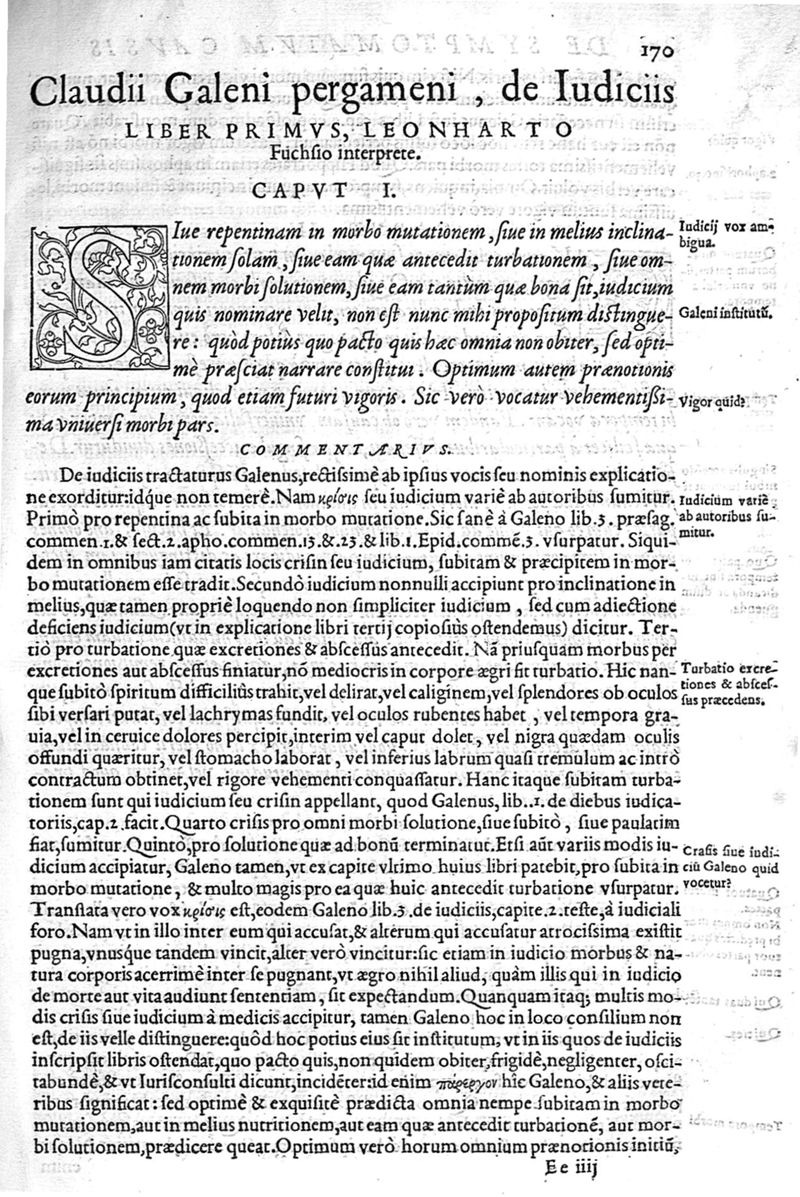 170
Claudii Galeni pergameni , de Iudiciis
LIBER PRIMVS, LEONHARTO
Fuchsio interprete.
CAPVT I.
SIue repentinam in morbo mutationem, siue in melius inclina-
tionem solam, siue eam quæ antecedit turbationem, siue om-
nem morbi solutionem, siue eam tantùm quæ bona sit, iudicium
quis nominare velit, non est nunc mihi propositum distingue-
re: quòd potiùs quo pacto quis hæc omnia non obiter, sed opti-
mè præsciat narrare constitui. Optimum autem prænotionis
eorum principium, quod etiam futuri vigoris. Sic verò vocatur vehementissi-
ma vniuersi morbi pars.
Iudicij vox am-
bigua.
Galeni institutū.
Vigor quid?
COMMENTARIVS.
De iudiciis tractaturus Galenus, rectissimè ab ipsius vocis seu nominis explicatio-
ne exorditur: idq́ue non temerè. Nam κρίσις seu iudicium variè ab autoribus sumitur.
Primò pro repentina ac subita in morbo mutatione. Sic sanè à Galeno lib.3. præsag.
commen.1. & sect.2. apho. commen.13. & 23. & lib.1. Epid. commē.3. vsurpatur. Siqui-
dem in omnibus iam citatis locis crisin seu iudicium, subitam & præcipitem in mor-
bo mutationem esse tradit. Secundò iudicium nonnulli accipiunt pro inclinatione in
melius, quæ tamen propriè loquendo non simpliciter iudicium, sed cum adiectione
deficiens iudicium (vt in explicatione libri tertij copiosiùs ostendemus) dicitur. Ter-
tiò pro turbatione quæ excretiones & abscessus antecedit. Nā priusquam morbus per
excretiones aut abscessus finiatur, nō mediocris in corpore ægri fit turbatio. Hic nan-
que subitò spiritum difficiliùs trahit, vel delirat, vel caliginem, vel splendores ob oculos
sibi versari putat, vel lachrymas fundit, vel oculos rubentes habet, vel tempora gra-
uia, vel in ceruice dolores percipit, interim vel caput dolet, vel nigra quædam oculis
offundi quæritur, vel stomacho laborat, vel inferius labrum quasi tremulum ac intrò
contractum obtinet, vel rigore vehementi conquassatur. Hanc itaque subitam turba-
tionem sunt qui iudicium seu crisin appellant, quod Galenus, lib..1. de diebus iudica-
toriis, cap.2. facit. Quarto crisis pro omni morbi solutione, siue subitò, siue paulatim
fiat, sumitur. Quintò, pro solutione quæ ad bonū terminatur. Etsi aūt variis modis iu-
dicium accipiatur, Galeno tamen, vt ex capite vltimo huius libri patebit, pro subita in
morbo mutatione, & multo magis pro ea quæ huic antecedit turbatione vsurpatur.
Translata vero vox κρίσις est, eodem Galeno lib.3. de iudiciis, capite.2. teste, à iudiciali
foro. Nam vt in illo inter eum qui accusat, & alterum qui accusatur atrocissima existit
pugna, vnusque tandem vincit, alter verò vincitur: sic etiam in iudicio morbus & na-
tura corporis acerrimè inter se pugnant, vt ægro nihil aliud, quàm illis qui in iudicio
de morte aut vita audiunt sententiam, sit expectandum. Quanquam itaq; multis mo-
dis crisis siue iudicium à medicis accipitur, tamen Galeno hoc in loco consilium non
est, de iis velle distinguere: quôd hoc potius eius sit institutum, vt in iis quos de iudiciis
inscripsit libris ostendat, quo pacto quis, non quidem obiter, frigidè, negligenter, osci-
tabundè, & vt Iurisconsulti dicunt, incidēter: id enim πάρεργον hîc Galeno, & aliis vete-
ribus significat: sed optimè & exquisitè prædicta omnia nempe subitam in morbo
mutationem, aut in melius nutritionem, aut eam quæ antecedit turbationē, aut mor-
bi solutionem, prædicere queat. Optimum verò horum omnium prænotionis initiū,
Iudicium variè
ab autoribus su-
mitur.
Turbatio excre-
tiones & absces-
sus præcedens.
Crasis siue iudi-
ciū Galeno quid
vocetur?
Ee iiij